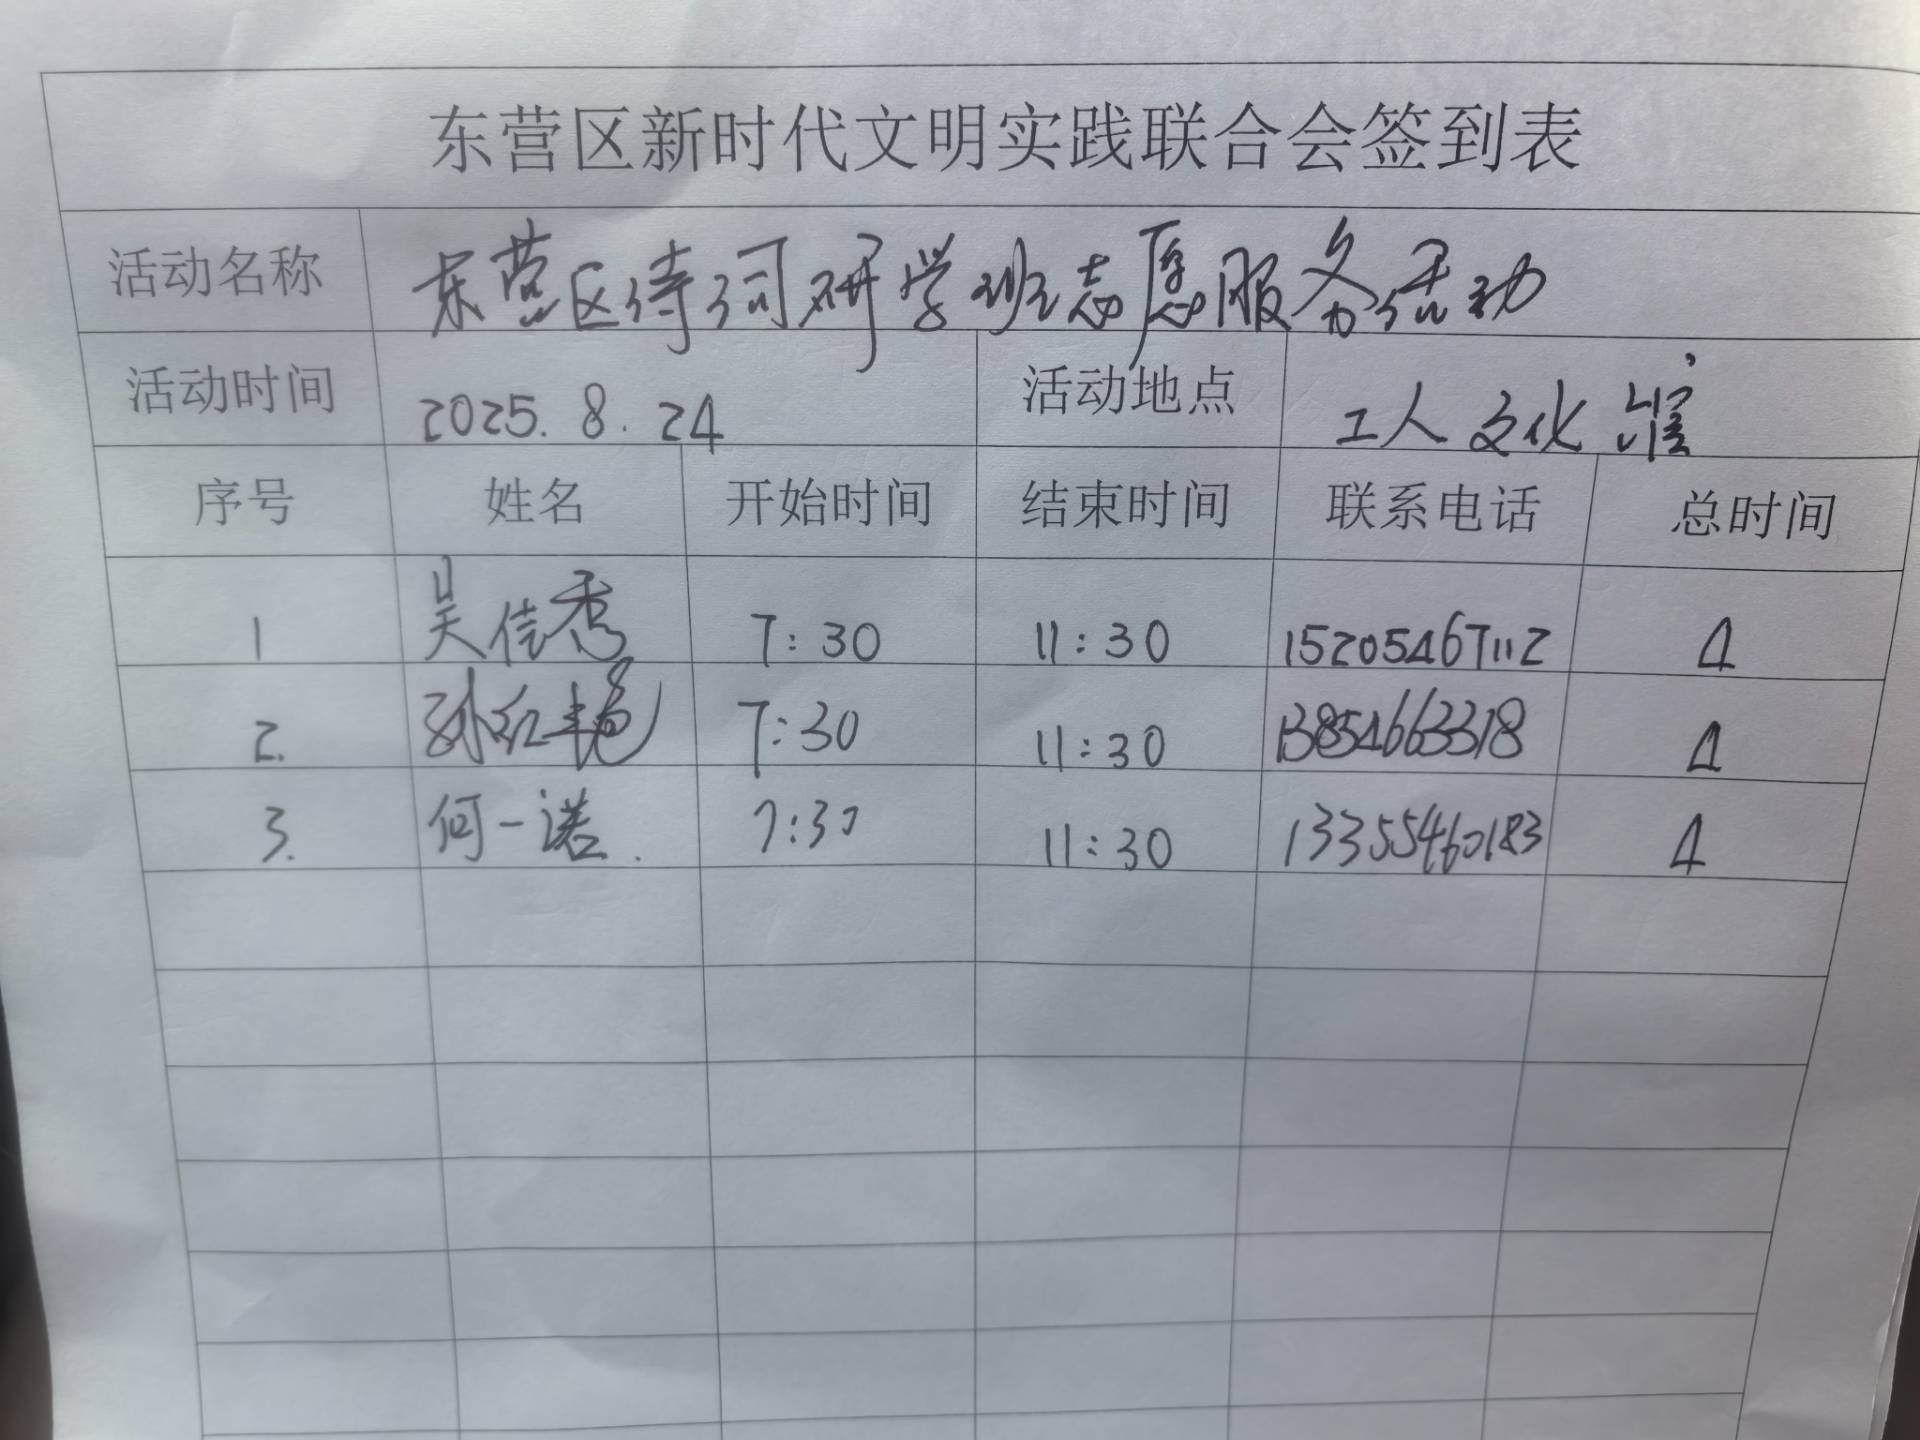 东营区新时代文明实践联合会签到表
活动名称 东营区诗词研学班志愿服务活动
活动时间 2025.8.24 活动地点 工人文化馆
序号 姓名 开始时间 结束时间 联系电话 总时间
1 吴佳秀 7:30 11:30 15205467112 4
2. 孙红艳 7:30 11:30 13854663318 4
3. 何一诺. 7:30 11:30 13355460183 4